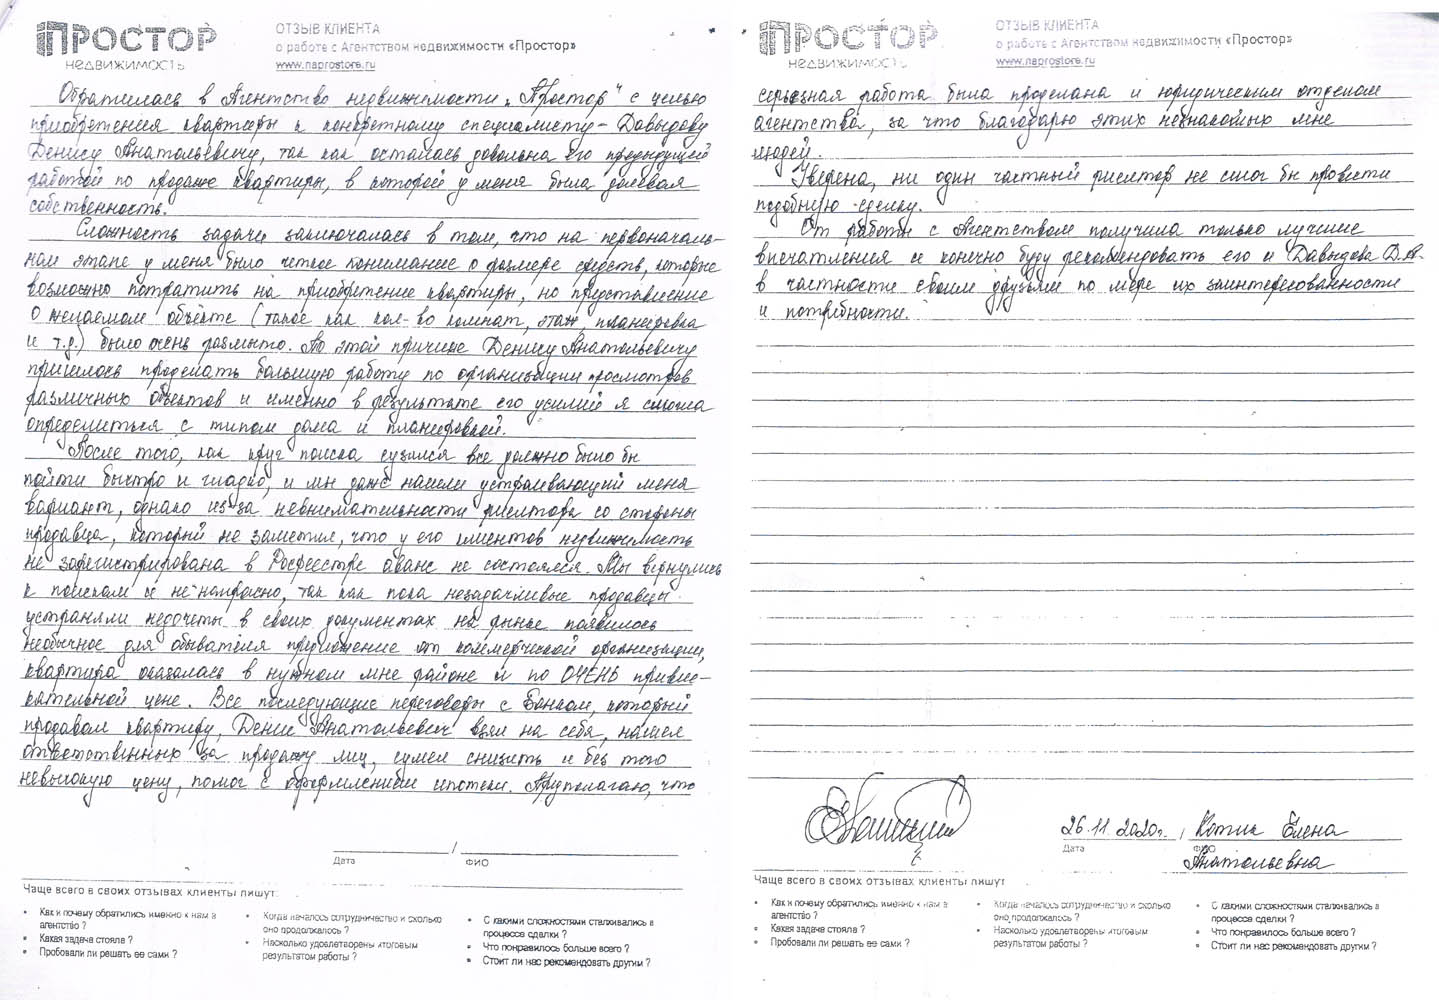 ПРОСТОР
НЕДВИЖИМОСТЬ
ОТЗЫВ КЛИЕНТА
о работе с Агентством недвижимости «Простор»
www.naprostore.ru
Обратилась в Агентство недвижимости „Простор" с целью
приобретения квартиры к конкретному специалисту - Давыдову
Денису Анатольевичу, так как осталась довольна его предыдущей
работой по продаже квартиры, в которой у меня была долевая
собственность.
Сложность задачи заключалась в том, что на первоначаль-
ном этапе у меня было четкое понимание о размере средств, которые
возможно потратить на приобретение квартиры, но представление
о желаемом объекте (такое как кол-во комнат, этаж, планировка
и т.д.) было очень размыто. По этой причине Денису Анатольевичу
пришлось проделать большую работу по организации просмотров
различных объектов и именно в результате его усилий я смогла
определиться с типом дома и планировкой.
После того, как круг поиска сузился все должно было бы
пойти быстро и гладко, и мы даже нашли устраивающий меня
вариант, однако из-за невнимательности риелтора со стороны
продавца, который не заметил, что у его клиентов недвижимость
не зарегистрирована в Росреестре аванс не состоялся. Мы вернулись
к поискам и не напрасно, так как пока незадачливые продавцы
устраняли недочеты в своих документах на рынке появилось
необычное для обывателя предложение от коммерческой организации,
квартира оказалась в нужном мне районе и по ОЧЕНЬ привле-
кательной цене. Все последующие переговоры с Банком, который
продавал квартиру, Денис Анатольевич взял на себя, нашел
ответственных за продажу лиц, сумел снизить и без того
невысокую цену, помог с оформлением ипотеки. Предполагаю, что
/
Дата
ФИО
Чаще всего в своих отзывах клиенты пишут:
• Как и почему обратились именно к нам в
агентство ?
• Какая задача стояла ?
• Пробовали ли решать ее сами ?
• Когда началось сотрудничество и сколько
оно продолжалось ?
• Насколько удовлетворены итоговым
результатом работы ?
• С какими сложностями сталкивались в
процессе сделки ?
• Что понравилось больше всего ?
• Стоит ли нас рекомендовать другим ?
ПРОСТОР
НЕДВИЖИМОСТЬ
ОТЗЫВ КЛИЕНТА
о работе с Агентством недвижимости «Простор»
www.naprostore.ru
серьезная работа была проделана и юридическим отделом
агентства, за что благодарю этих незнакомых мне
людей.
Уверена, ни один частный риелтор не смог бы провести
подобную сделку.
От работы с Агентством получила только лучшие
впечатления и конечно буду рекомендовать его и Давыдова Д.А.
в частности своим друзьям по мере их заинтересованности
и потребности.
26.11.2020г. / Котик Елена
Дата
ФИО
Анатольевна
Чаще всего в своих отзывах клиенты пишут
• Как и почему обратились именно к нам в
агентство ?
• Какая задача стояла ?
• Пробовали ли решать ее сами ?
• Когда началось сотрудничество и сколько
оно продолжалось ?
• Насколько удовлетворены итоговым
результатом работы ?
• С какими сложностями сталкивались в
процессе сделки ?
• Что понравилось больше всего ?
• Стоит ли нас рекомендовать другим ?